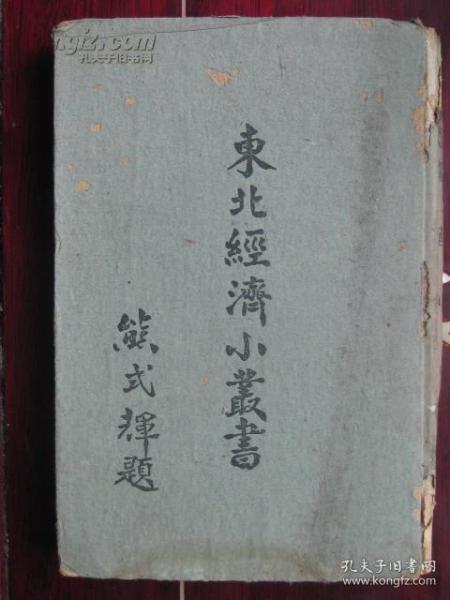 東北經濟小叢書
熊式輝題
孔夫子旧书网
孔夫子旧书网
www.kongfz.com